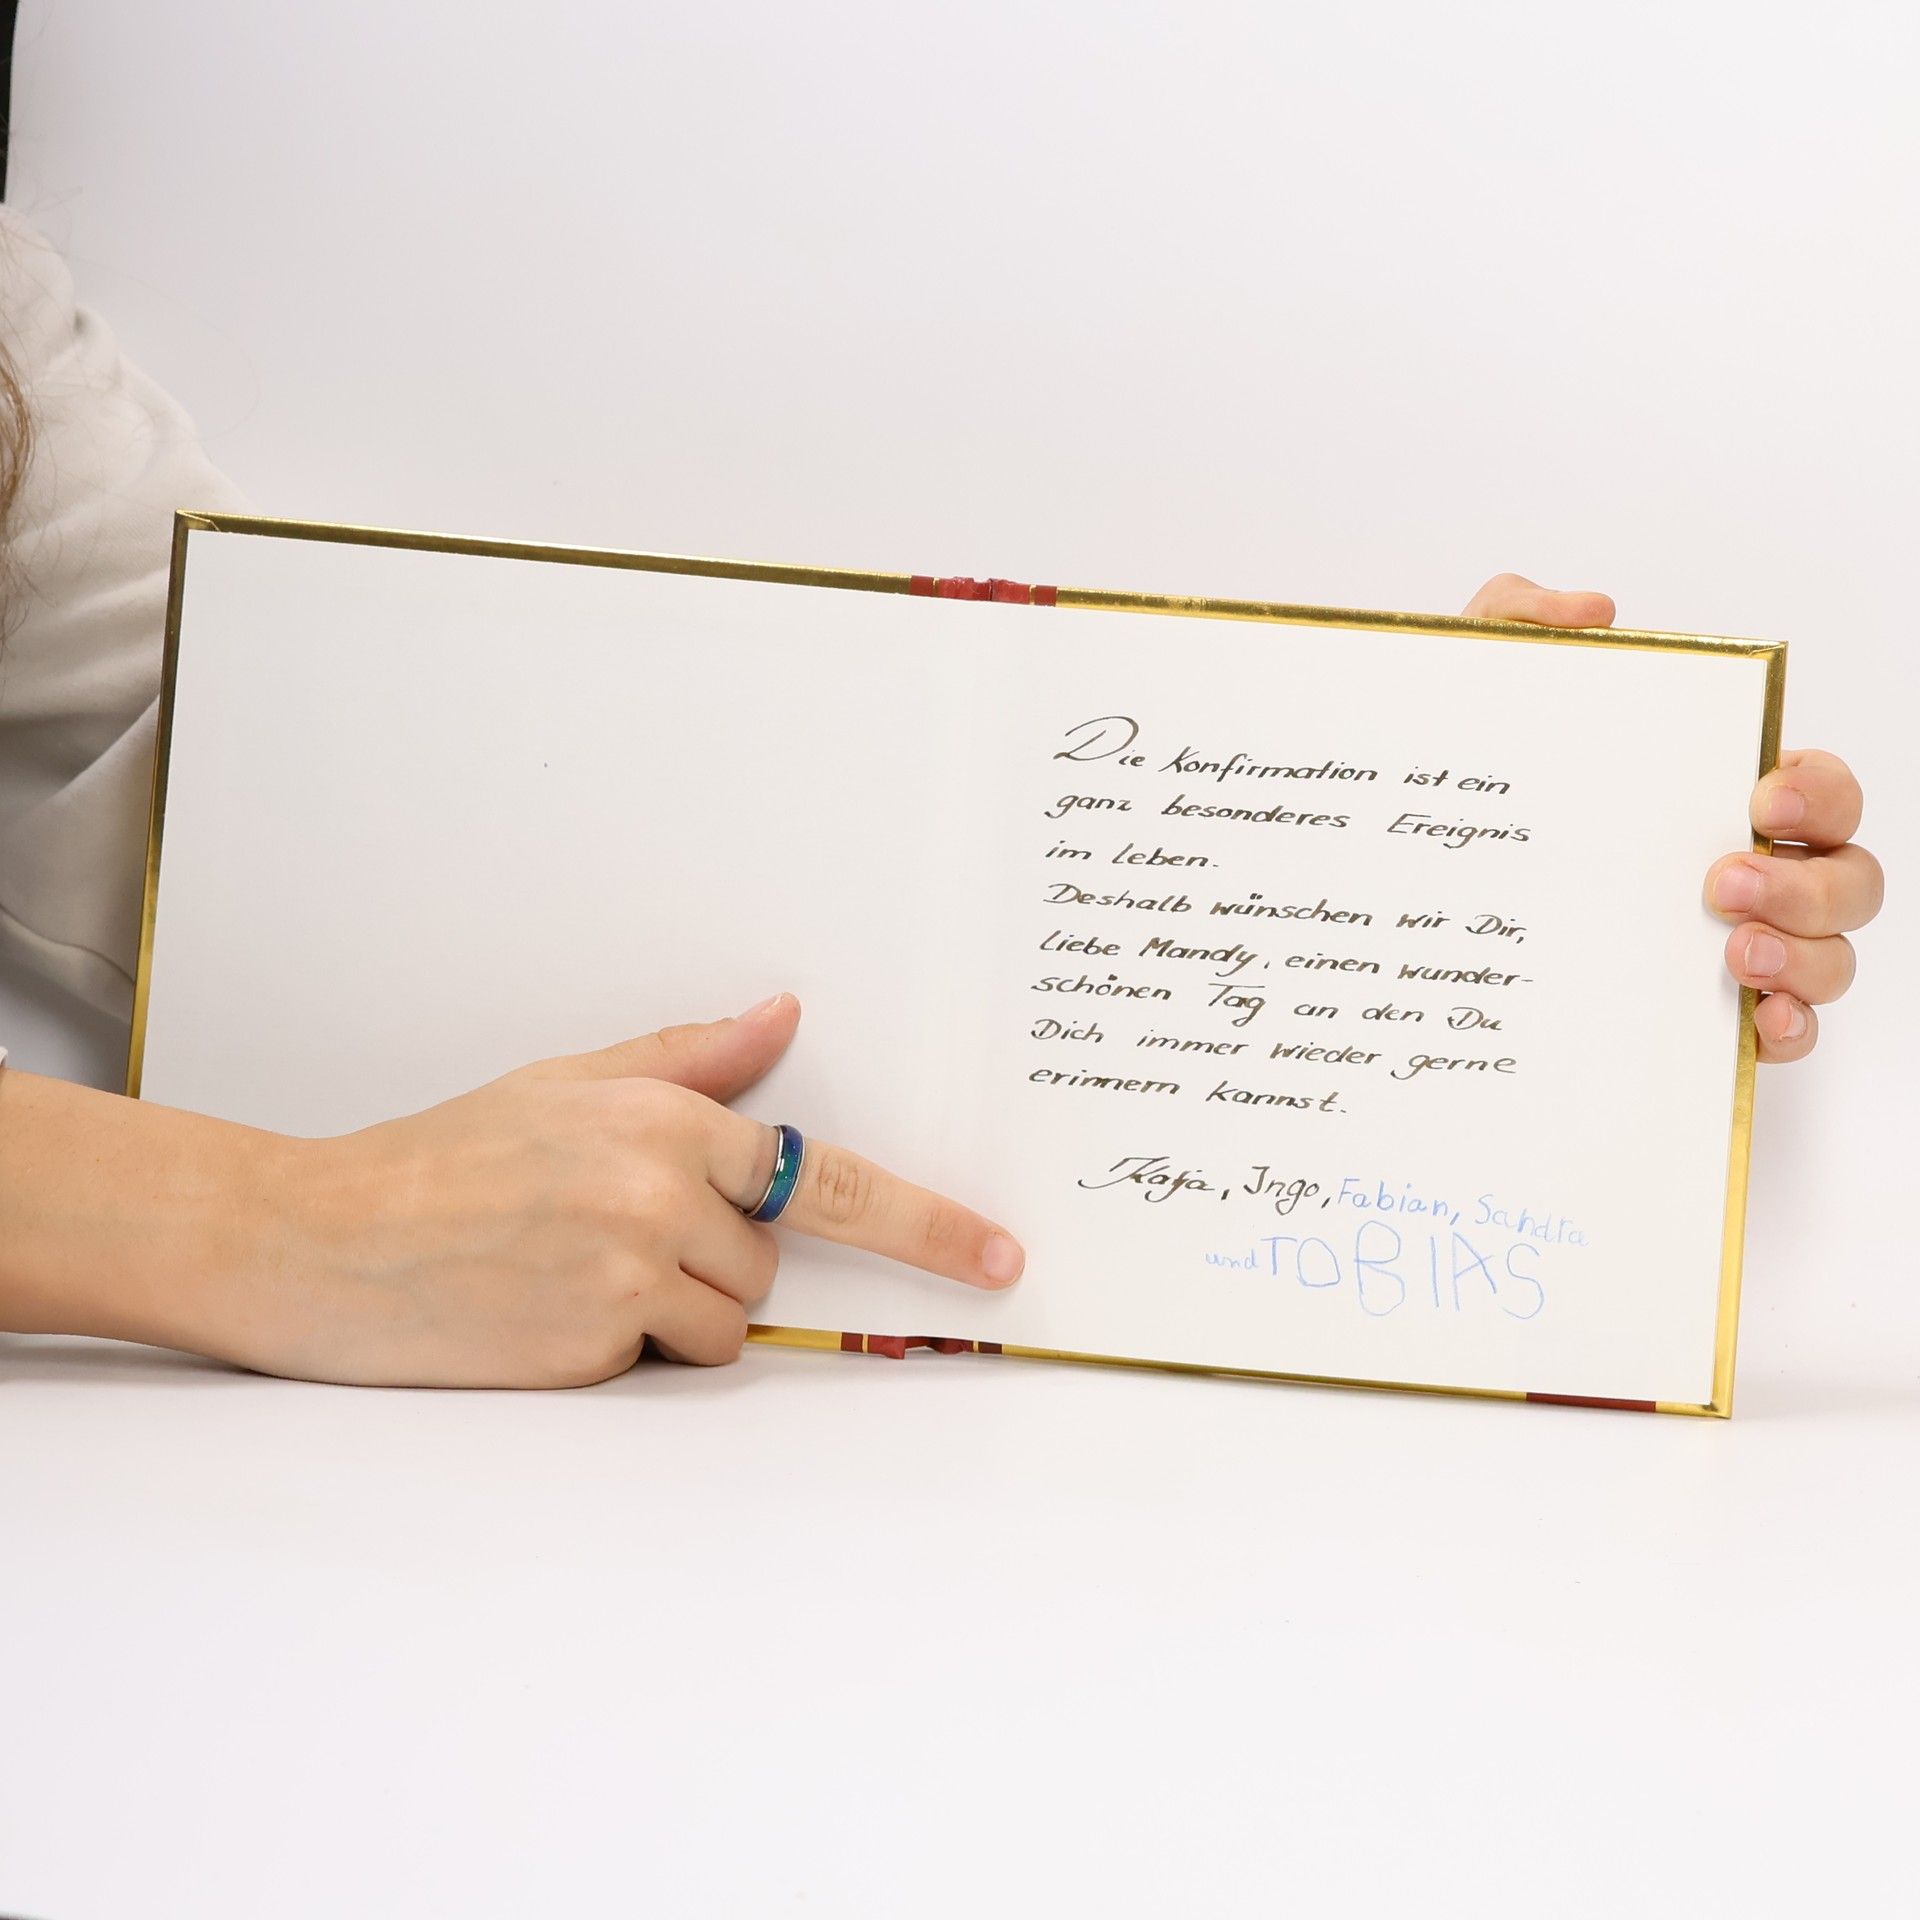 Die Konfirmation ist ein
ganz besonderes Ereignis
im Leben.
Deshalb wünschen wir Dir,
liebe Mandy, einen wunder-
schönen Tag an den Du
Dich immer wieder gerne
erinnern kannst.
Katja, Ingo, Fabian, Sandra
und TOBIAS